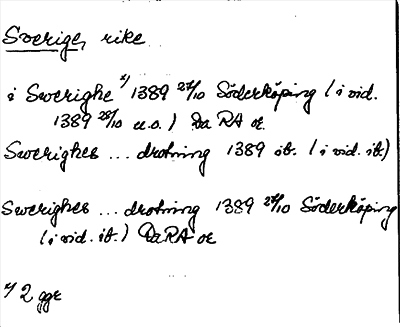 Sverige, rike
i Swerighe x/ 1389 27/10 Söderköping (i vid.
1389 28/10 u.o.) Da RA or
Swerighes ... drotning 1389 ib. (i vid. ib.)
Swerighes ... drotning 1389 27/10 Söderköping
(i vid. ib.) DaRA or
x/ 2 ggr